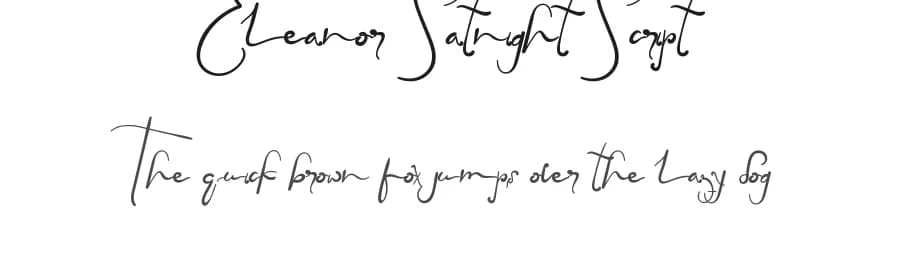 Eleanor Satright Script
The quick brown fox jumps over the lazy dog